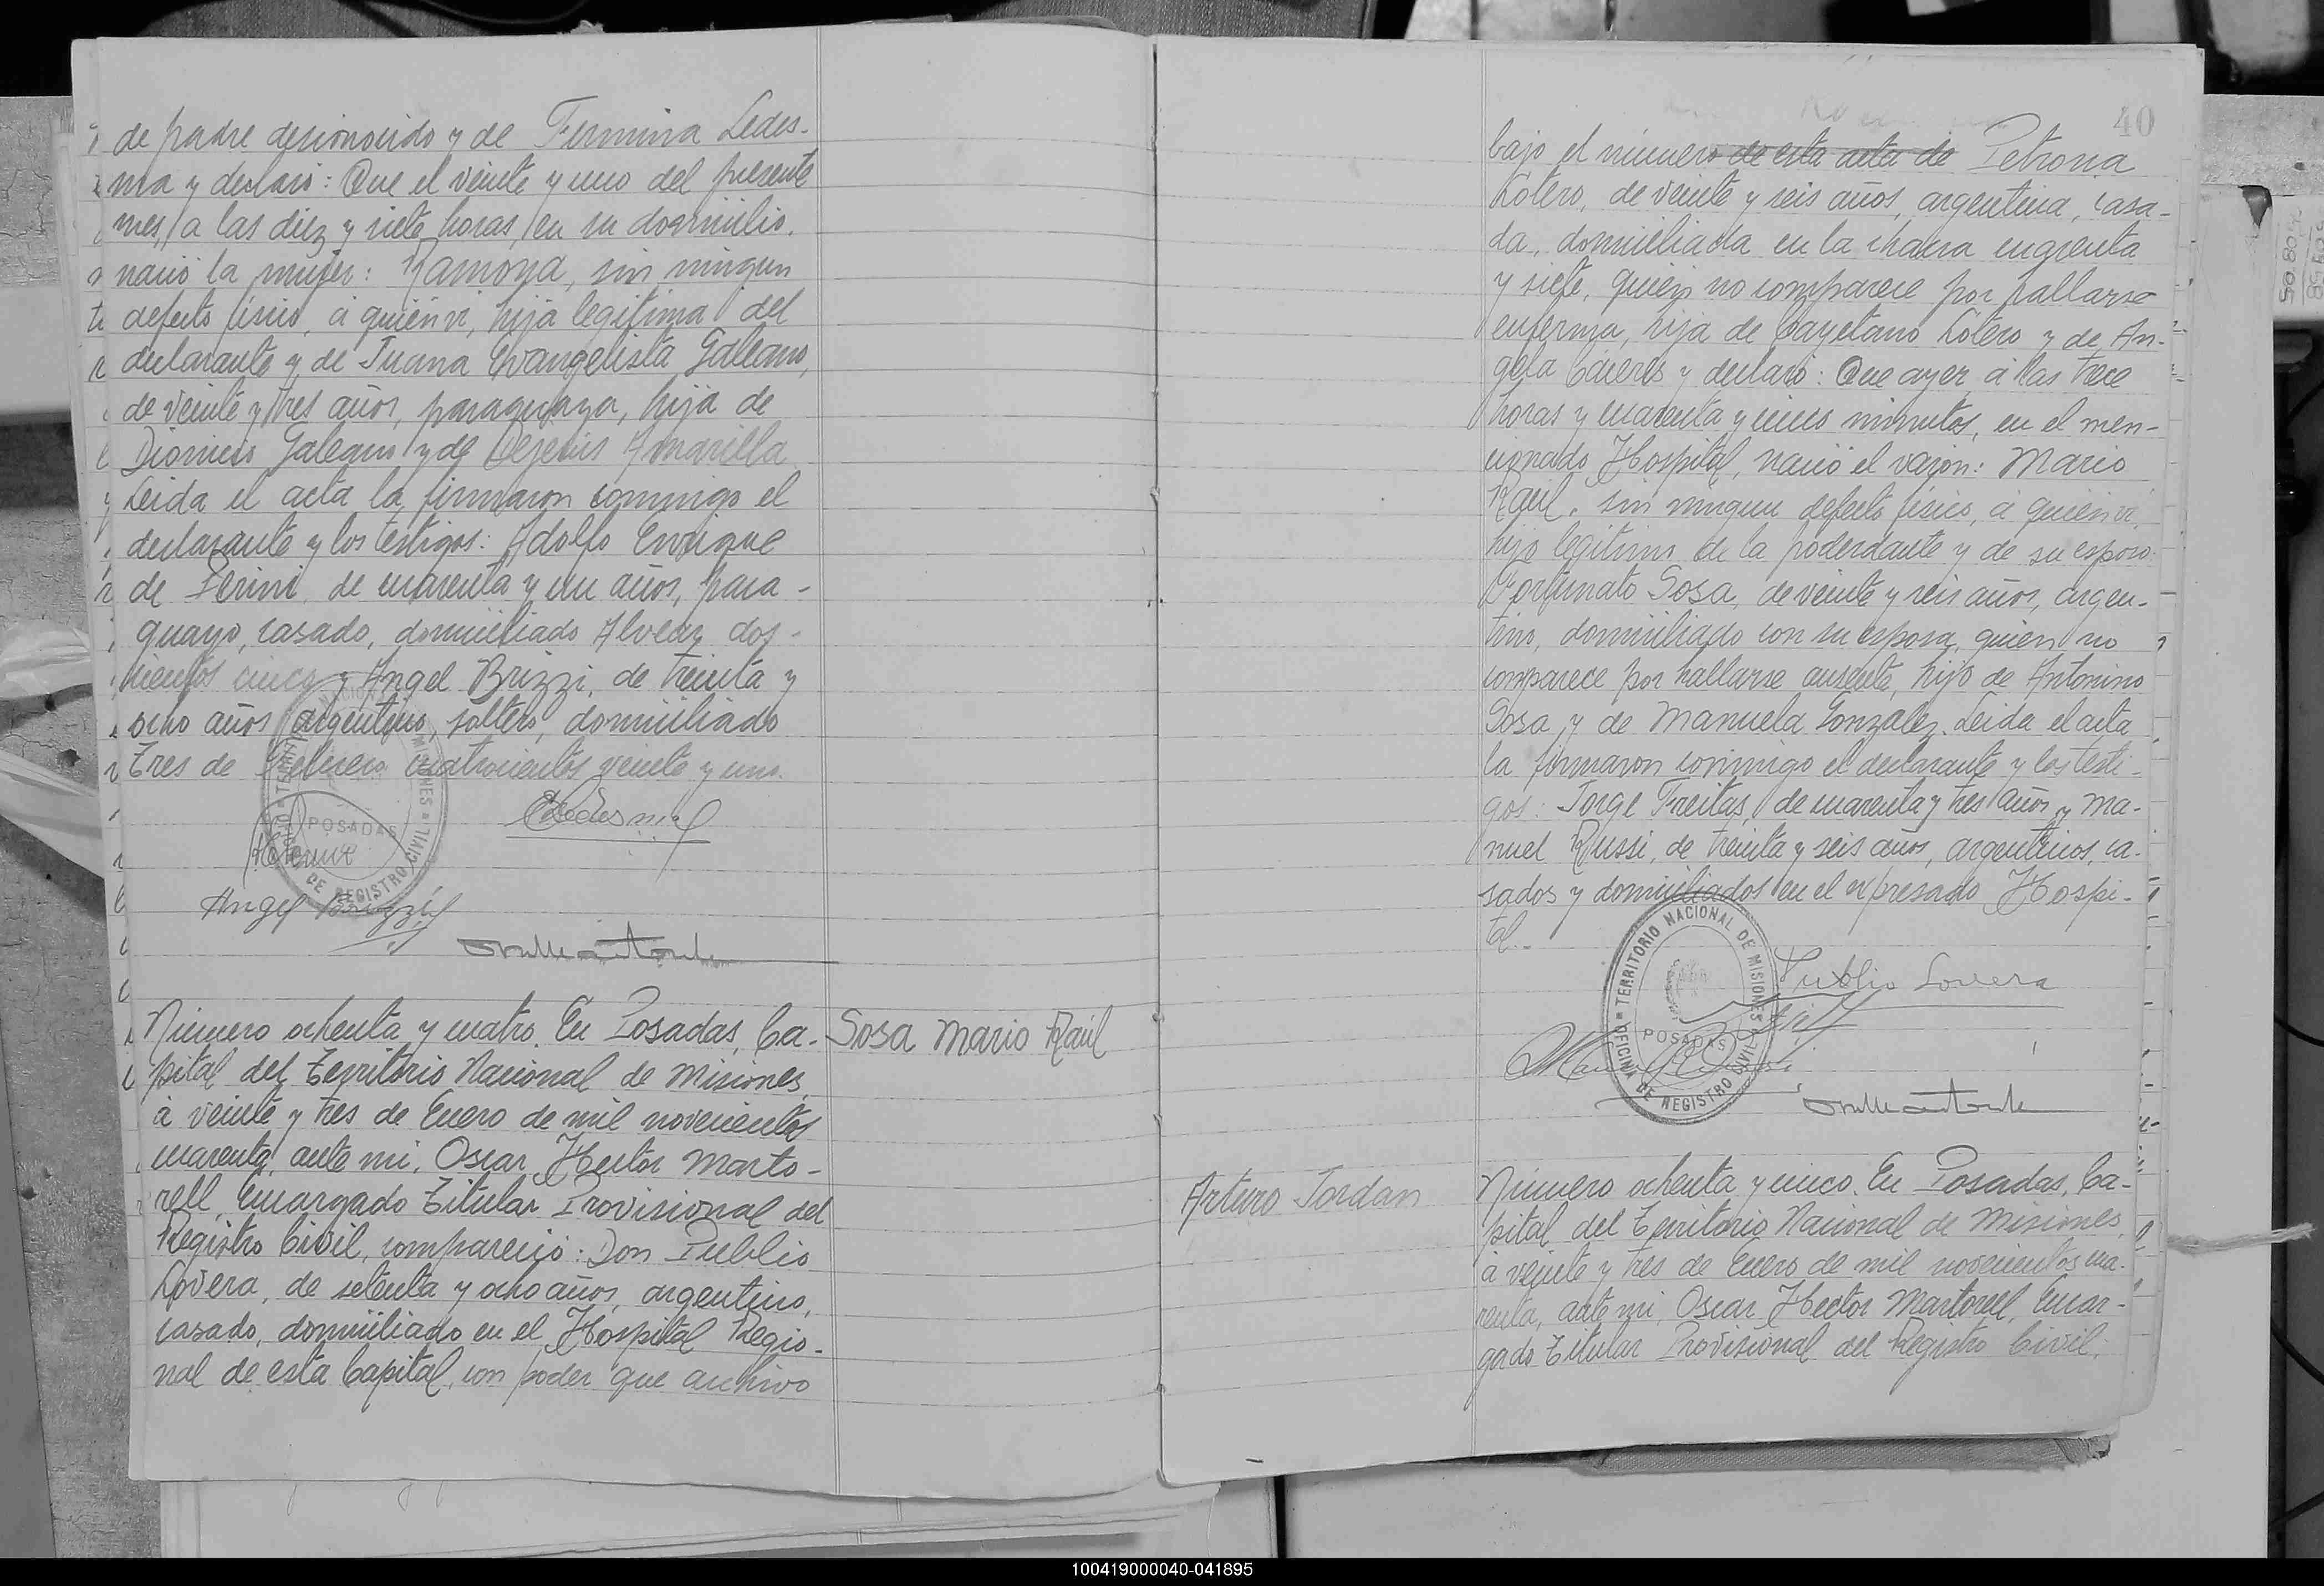 de padre desconocido y de Fermina Ledes-
ma y declaró: Que el veinte y uno del presente
mes, a las diez y siete horas, en su domicilio,
nació la mujer: Ramona, sin ningun
defecto físico, á quién vi, hija legítima del
declarante y de Juana Evangelista Galeano,
de veinte y tres años, paraguaya, hija de
Dionicio Galeano y de Dejesús Amarilla
Leida el acta la firmaron conmigo el
declarante y los testigos: Adolfo Enrique
de Perini, de cuarenta y un años, para-
guayo, casado, domiciliado Alvear dos-
cientos cinco y Angel Brizzi, de treinta y
ocho años, argentino, soltero, domiciliado
tres de Febrero cuatrocientos veinte y uno.
Angel Brizzi
POSADAS
OFICINA DE REGISTRO CIVIL
Número ochenta y cuatro. En Posadas, Ca-
pital del Territorio Nacional de Misiones,
á veinte y tres de Enero de mil novecientos
cuarenta, ante mi, Oscar Hector Marto-
rell, Encargado Titular Provisional del
Registro Civil, compareció: Don Publio
Lovera, de setenta y ocho años, argentino,
casado, domiciliado en el Hospital Regio-
nal de esta Capital, con poder que archivo
Sosa Mario Raúl
40
bajo el número de esta acta de Petrona
Lotero, de veinte y seis años, argentina, casa-
da, domiciliada en la chacra cuarenta
y siete, quién no comparece por hallarse
enferma, hija de Cayetano Lotero y de An-
gela Cáceres y declaró: Que ayer á las trece
horas y cuarenta y cinco minutos, en el men-
cionado Hospital, nació el varón: Mario
Raúl, sin ningun defecto físico, á quién vi,
hijo legítimo de la poderdante y de su esposo
Fortunato Sosa, de veinte y seis años, argen-
tino, domiciliado con su esposa, quién no
comparece por hallarse ausente, hijo de Antonino
Sosa y de Manuela Gonzalez. Leida el acta
la firmaron conmigo el declarante y los testi-
gos: Jorge Freitas, de cuarenta y tres años y Ma-
nuel Russi, de treinta y seis años, argentinos, ca-
sados y domiciliados en el expresado Hospi-
tal.-
Publio Lovera
TERRITORIO NACIONAL DE MISIONES
POSADAS
OFICINA DE REGISTRO CIVIL
Arturo Jordan
Número ochenta y cinco. En Posadas, Ca-
pital del Territorio Nacional de Misiones,
á veinte y tres de Enero de mil novecientos cua-
renta, ante mi, Oscar Hector Martorell, Encar-
gado Titular Provisional del Registro Civil,
100419000040-041895